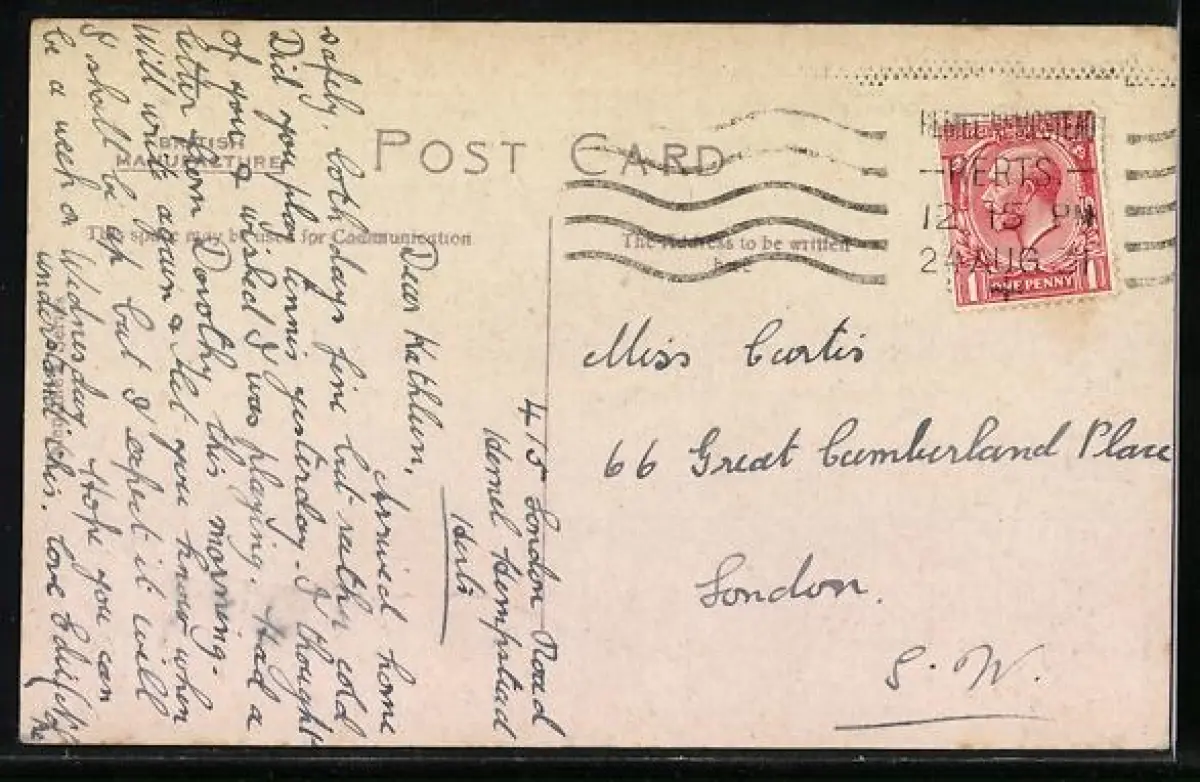 POST CARD
BRITISH
MANUFACTURE
This space may be used for Communication
The Address to be written
here
HERTS
12 15 PM
24 AUG
1 ONE PENNY 1
Miss Curtis
66 Great Cumberland Place
London.
S. W.
415 London Road
Hemel Hempstead
Herts
Dear Kathleen,
Arrived home
safely. both days fine but rather cold
Did you play tennis yesterday. I thought
of you & wished I was playing. Had a
letter from Dorothy this morning.
Will write again & let you know when
I shall be up but I expect it will
be a week on Wednesday Hope you can
understand this. love